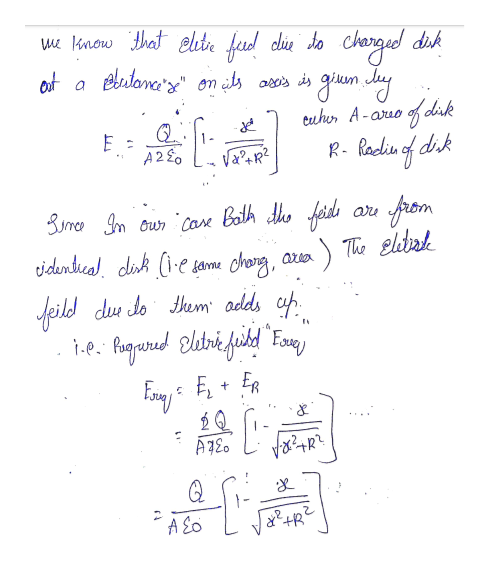 we know that Eletic feild due to charged disk
at a distance "x" on its axis is given by
E = Q / A2ε₀ [1 - x / √x²+R²] where A - area of disk
R - Radius of disk
Since In our case Both the feids are from
identical disk (i.e same charg, area) The Eletric
feild due to them adds up.
i.e. Required Eletric feild "Ereq"
Ereq = E₂ + ER
= 2Q / A2ε₀ [1 - x / √x²+R²]
= Q / Aε₀ [1 - x / √x²+R²]